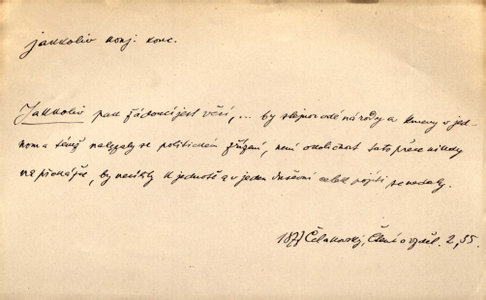 jakkoliv konj. konc.
Jakkoliv pak žádoucí jest věcí, ... by stejnorodé národy a kmeny v jed-
nom a témž nalezaly se politickém zřízení, není okoličnost tato přece nikdy
na překážku, by neměly k jednotě a v jeden duševní celek pojiti se nedaly.
1877 Čelakovský, Čtení o vzděl. 2, 35.